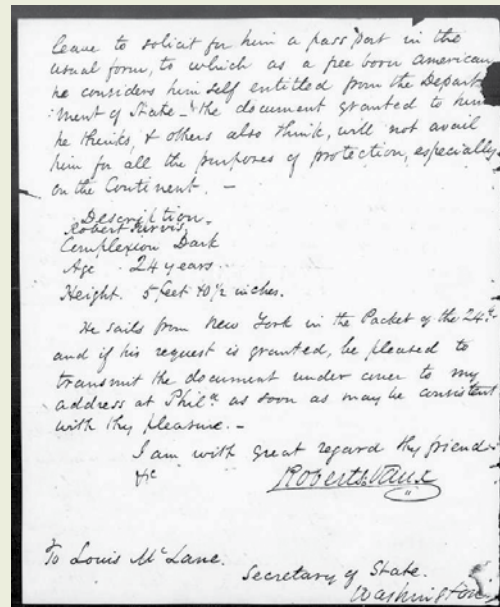 leave to solicit for him a passport in the
usual form, to which as a free born American
he considers himself entitled from the Depart-
:ment of State - the document granted to him
he thinks, & others also think, will not avail
him for all the purposes of protection, especially
on the Continent. -
Description.
Robert Purvis,
Complexion Dark
Age 24 years.
Height. 5 feet 10 1/2 inches.
He sails from New York in the Packet of the 24th
and if his request is granted, be pleased to
transmit the document under cover to my
address at Phila as soon as may be consistent
with thy pleasure. -
I am with great regard thy friend
&c
Roberts Vaux
To Louis McLane.
Secretary of State.
Washington